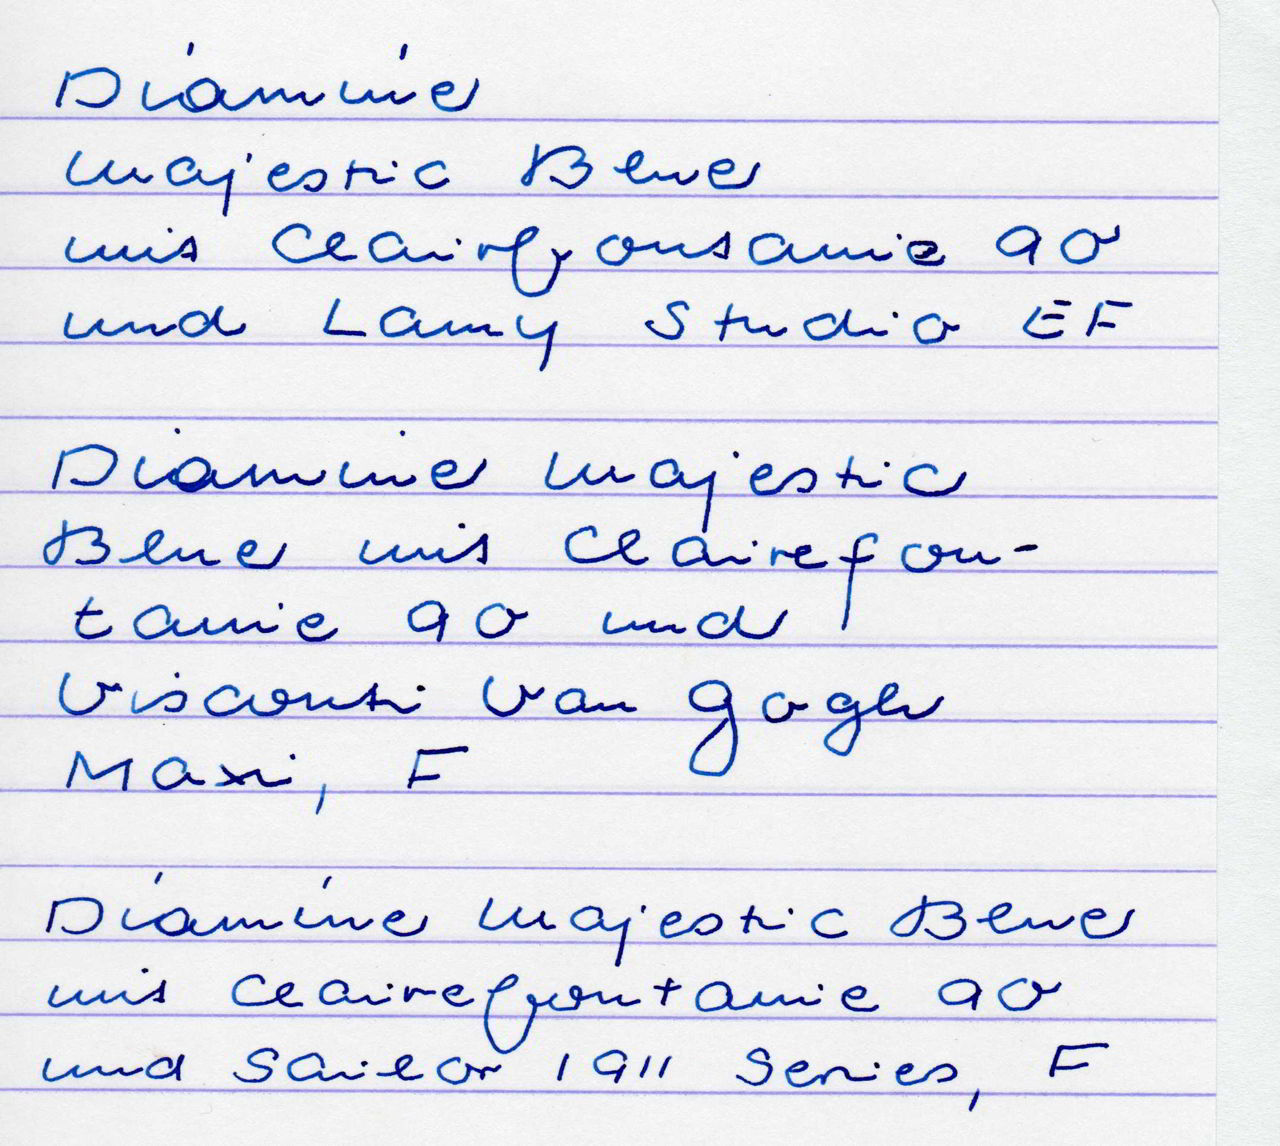 Diamine
majestic Blue
mit Clairefontaine 90
und Lamy Studio EF
Diamine majestic
Blue mit Clairefon-
taine 90 und
Visconti Van Gogh
Maxi, F
Diamine majestic Blue
mit Clairefontaine 90
und Sailor 1911 Series, F